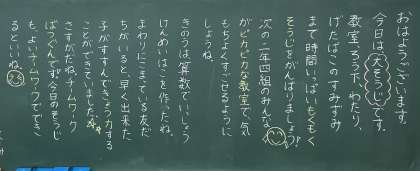 おはようございます。
今日は、大そうじです。
教室、ろう下、わたり、
げたばこのすみずみ
まで時間いっぱいもくもく
そうじをがんばりましょう!
次の二年四組のみんな
がピカピカな教室で、気
もちよくすごせるように
しようね。
きのうは算数でいっしょう
けんめいはこを作ったね。
まわりにこまっている友だ
ちがいると、早く出来た
子がすすんできょう力する
ことができていました。
さすがだね。チームワーク
ばつぐんです。今日のそうじ
も、よいチームワークででき
るといいね。